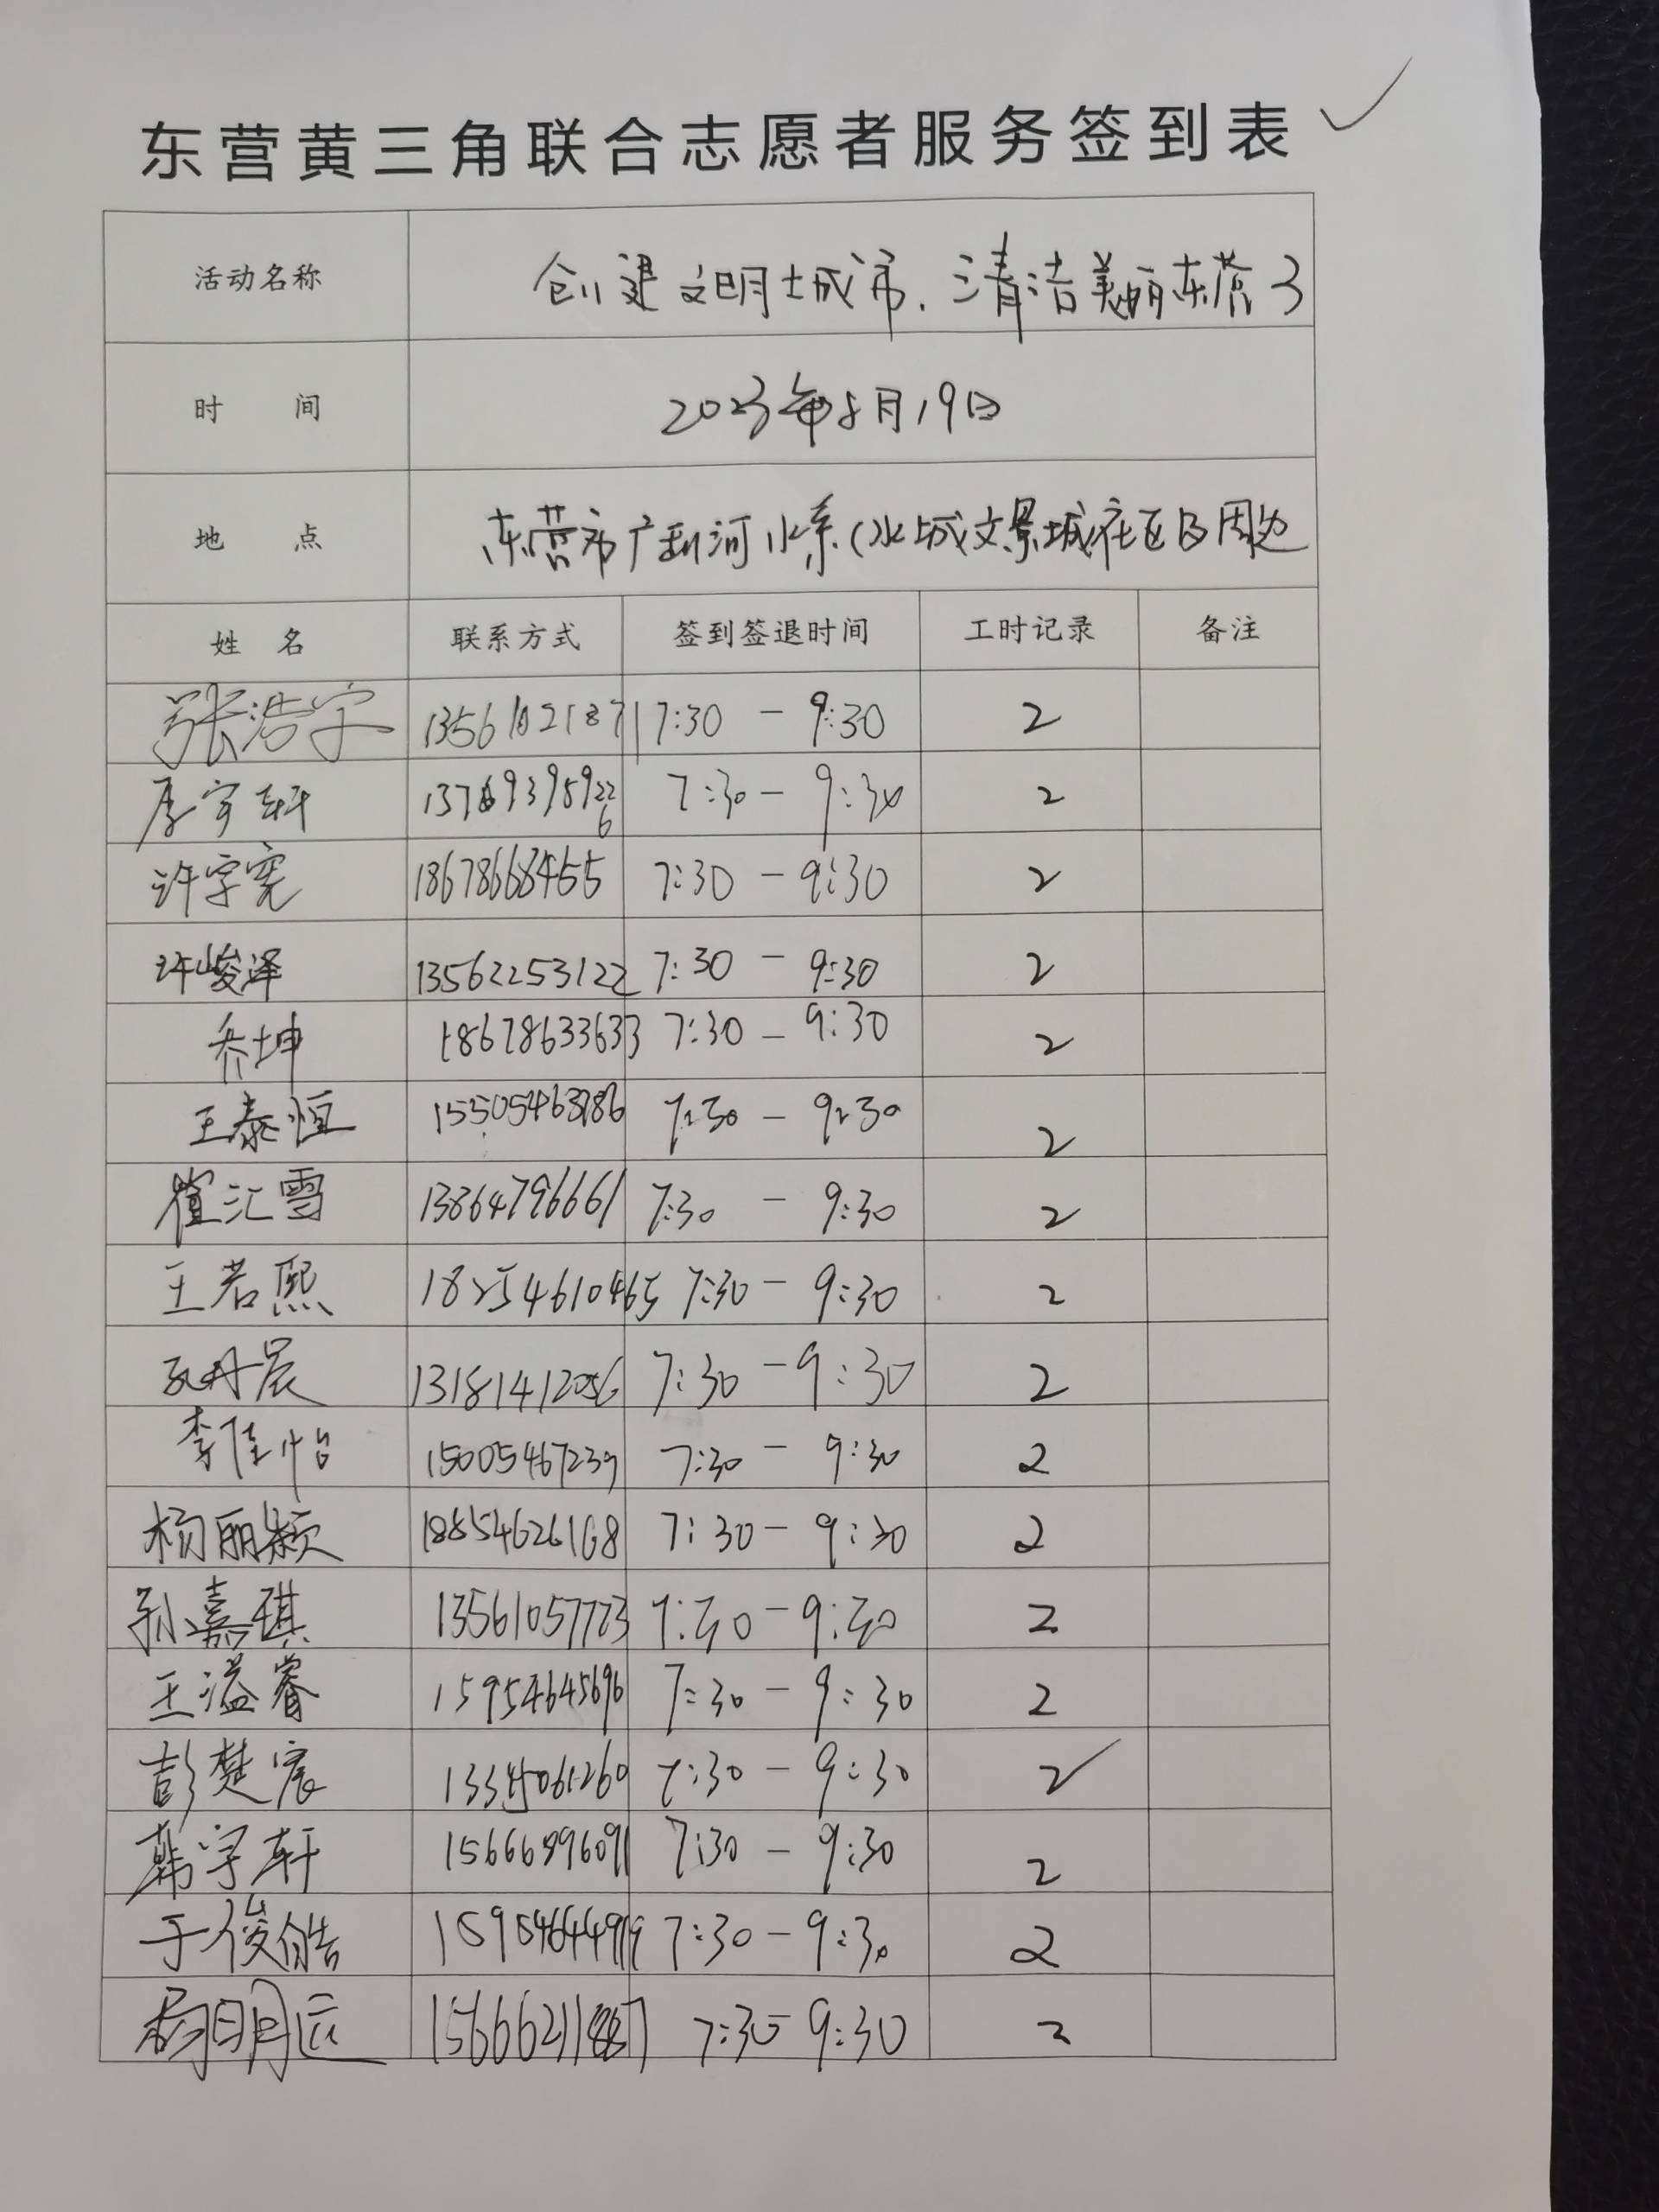 东营黄三角联合志愿者服务签到表
活动名称 创建文明城市、清洁美丽东营3
时 间 2023年8月19日
地 点 东营市广利河水系(水城文景城社区及周边
姓 名 联系方式 签到签退时间 工时记录 备注
张浩宇 13561021871 7:30 - 9:30 2
李宇轩 7:30 - 9:30 2
许字宪 18678668455 7:30 - 9:30 2
许峻泽 13562253122 7:30 - 9:30 2
乔坤 18678633633 7:30 - 9:30 2
王泰恒 7:30 - 9:30 2
崔汇雪 13864796661 7:30 - 9:30 2
王若熙 18254610465 7:30 - 9:30 2
丹晨 13181412056 7:30 - 9:30 2
李佳怡 15005467239 7:30 - 9:30 2
杨丽颖 18854626168 7:30 - 9:30 2
孙嘉琪 13561057773 7:30 - 9:30 2
王溢睿 15954645696 7:30 - 9:30 2
彭楚宸 7:30 - 9:30 2
韩宇轩 15666896091 7:30 - 9:30 2
于俊皓 7:30 - 9:30 2
杨明远 7:30 - 9:30 2